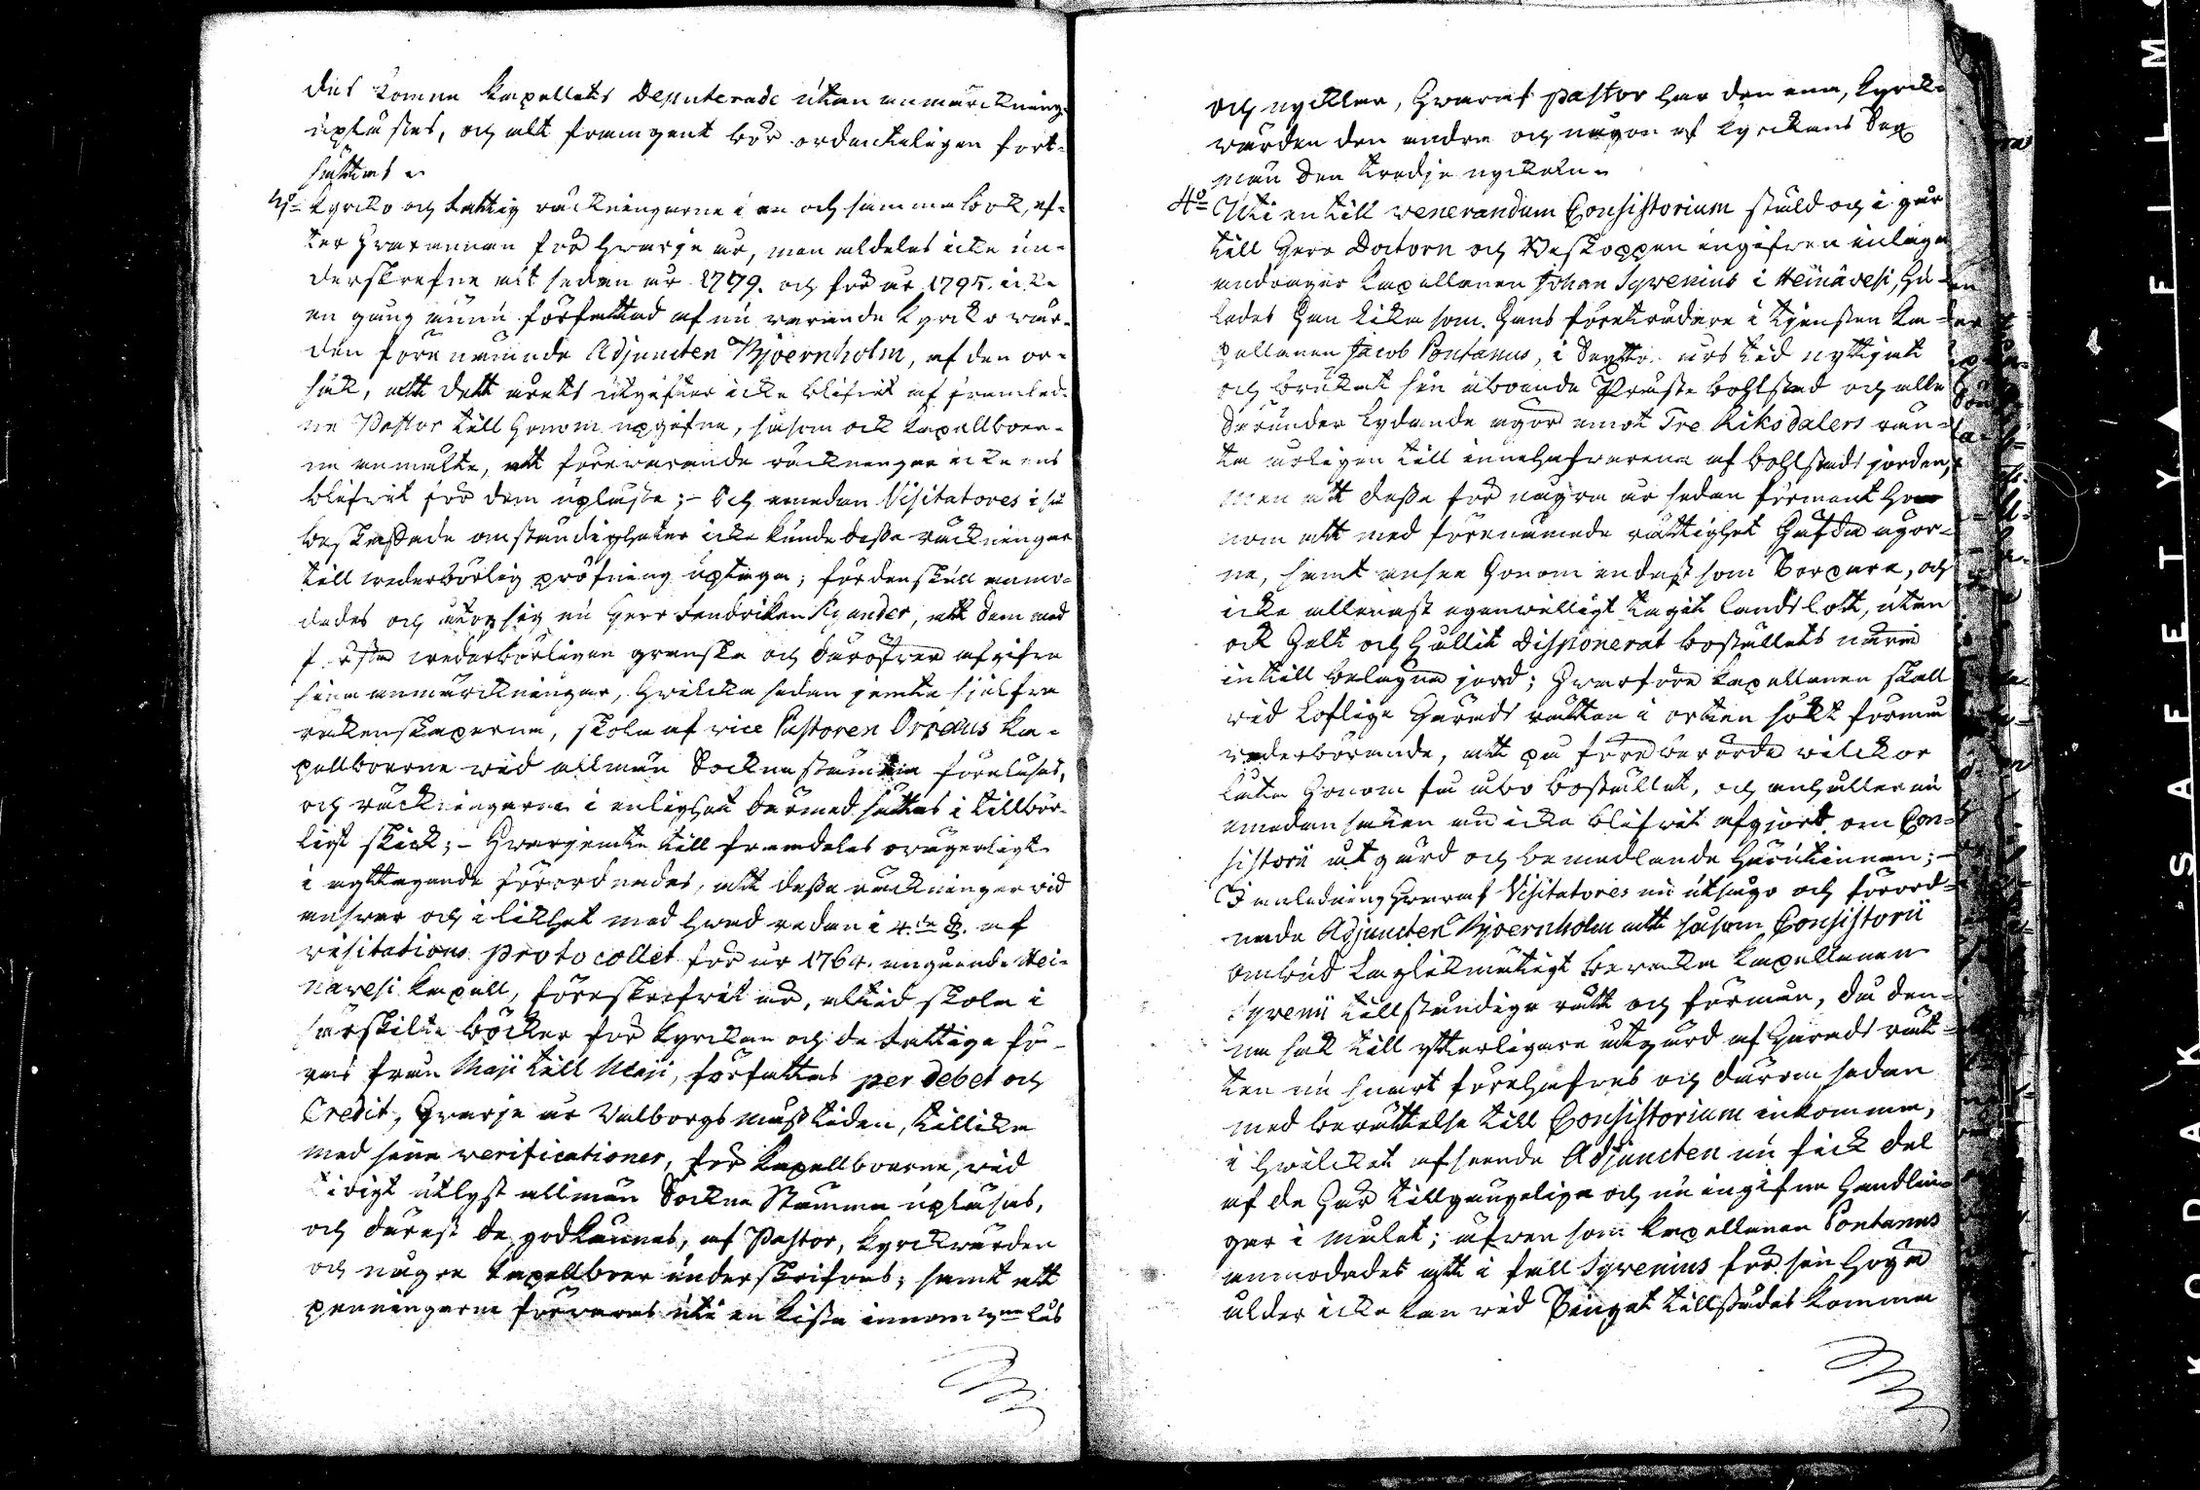 des komne Kapellets Deputerade utan anmärckning
uplästes, och allt framgent bör ordenteligen fort-
sättias.
3o Kyrcko och Fattig räckningarne i en och samma bok, ef-
ter hvarannan för hvarje år, men aldeles icke un-
derskrefne allt sedan år 1779. och för år 1795. icke
en gång ännu författad af nu varande Kyrcko vär-
den förenämnde Adjuncten Bjoernholm, af den or-
sak, att dett årets utgifter icke blifvit af framled-
ne Pastor till honom upgifne, såsom ock Kapellboer-
ne anmälte, att förevarande räckningar icke ens
blifvit för dem upläste; - Och emedan Visitatores i så
beskaffade omständigheter icke kunde dessa räckningar
till wederbörlig pröfning uptaga; fördenskull anmo-
dades och åtog sig nu Herr Fendriken Kyander, att dem med
wederbörligen granska och däröfver afgifva
sina anmärckningar, hvilcka sedan jemte sjelfva
räkenskaperna, skola af vice Pastoren Orraus Ka-
pellboerne vid allmän Sockne stämma föreläsas,
och räckningarne i enlighet dermed sättas i tillbör-
ligt skick; - Hvarjemte till framdeles oryggerligt
i agttagande förordnades, att dessa räckningar vid
answar och i likhet med hvad redan i 4.de §. af
visitations protocollet för år 1764. angående Hei-
navesi Kapell, föreskrefvit är, altid skola i
särskilte böcker för Kyrckan och de Fattiga fö-
ras från Maji till Maji, författas per debet och
Credit, hvarje år Valborgsmässtiden, tillika
med sina verificationer, för Kapellboerne, vid
tidigt utlyst allmän Sockne Stämma upläsas,
och därest de godkännas, af Pastor, Kyrckvärden
och någre Kapellboer underskrifvas; samt att
penningarne förvaras uti en kista innom 3ne lås
och nycklar, hvaraf Pastor har den ena, Kyrck-
värden den andra och någon af Kyrckans Sex
män den tredje nyckeln.
4o Uti en till venerandum Consistorium stäld och i går
till Herr Doctorn och Biskoppen ingifven inlaga
andrager Kapellanen Johan Syrenius i Heinävesi, hu-
ledes han lika som hans företrädare i tjensten Ka-
pellanen Jacob Pontanus, i Sextio års tid nyttjat
och brukat sin åboende Präste bohlstad och alla
därunder lydande ägor emot Tre Riksdalers rän-
ta årligen till innehafvarena af bohlstads jorden,
men att desse för några år sedan förment ho-
nom att med förenämnde rättighet häfda ägor-
ne, samt ansee honom endast som Torpare, och
icke allenast egenvilligt tagit landslott, utan
ock helt och hållit Disponerat boställets närm
intill belägna jord; hvarföre Kapellanen skall
vid Loflige Härads rätten i orten sökt förmå
vederbörande, att på föreberörde vilckor
låta honom få åbo bostället, och anhåller nu
emedan saken än icke blifvit afgjord om Con-
sistorii åtgärd och bemedlande härutinnan; -
I anledning hvaraf Visitatores nu utsågo och förord-
nade Adjuncten Bjoernholm att såsom Consistorii
ombud laglikmätigt bevaka Kapellanen
Syrenii tillständiga rätt och förmån, då den-
na sak till ytterligare åtgärd af Härads rät-
ten nu snart förehafves och därom sedan
med berättelse till Consistorium inkomma,
i hvilcket afseende Adjuncten nu fick del
af de här tillgängelige och nu ingifne Handlin-
gar i målet; äfven som Kapellanen Pontanus
anmodades att i fall Syrenius för sin höga
ålder icke kan vid Tinget tillstädes komma